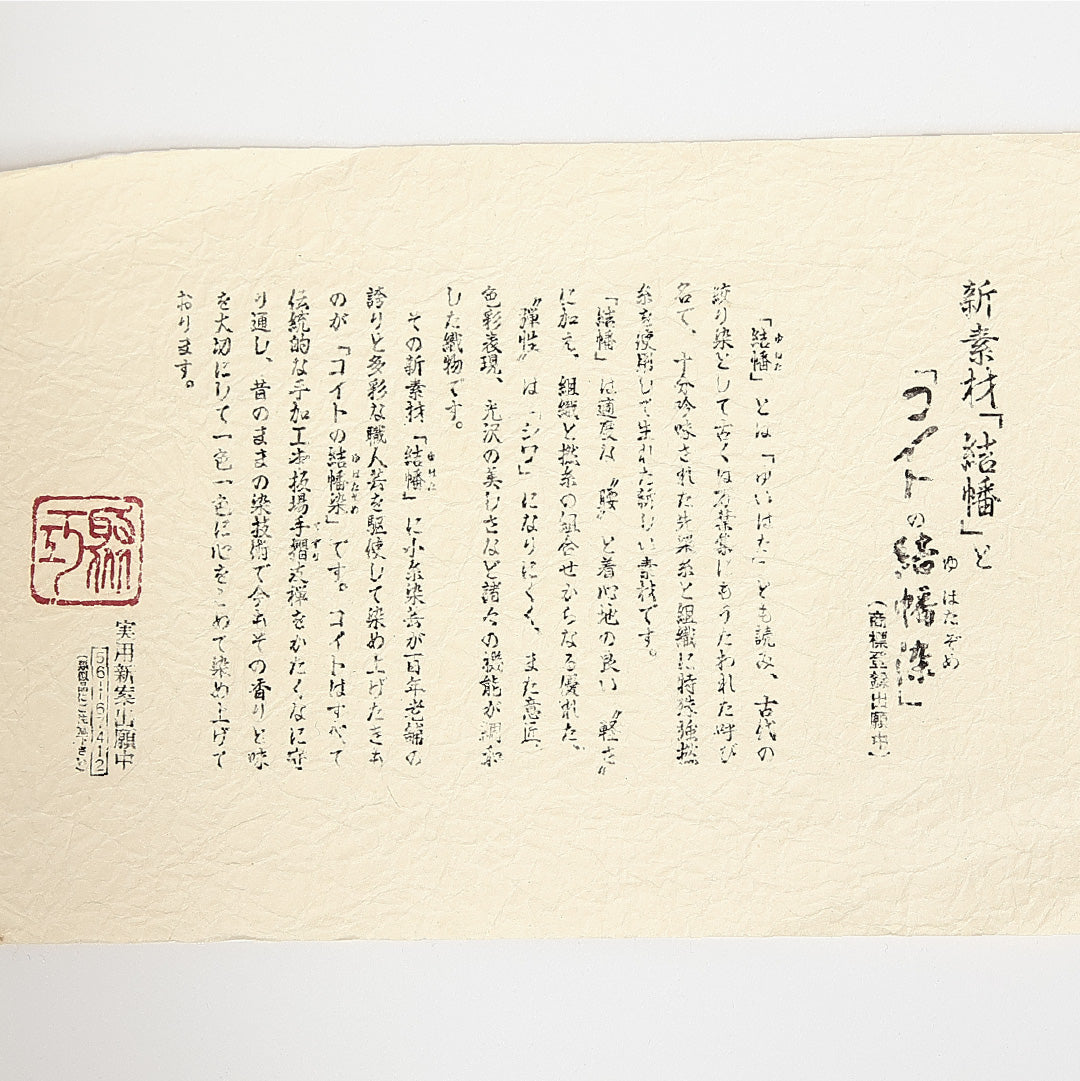 新素材「結幡」と
「コイトの結幡染」
ゆ はたぞめ
(商標登録出願中)
「結幡」とは「ゆいはた」とも読み、古代の
ゆはた
絞り染として古くは万葉集にもうたわれた呼び
名で、十分吟味された先染糸と組織に特殊強撚
糸を使用して生れた新しい素材です。
「結幡」は適度な〝腰〟と着心地の良い〝軽さ〟
に加え、組織と撚糸の組合せからなる優れた、
〝弾性〟は「シワ」になりにくく、また意匠、
色彩表現、光沢の美しさなど諸々の機能が調和
した織物です。
その新素材「結幡」に小糸染芸が百年老舗の
ゆはた
誇りと多彩な職人芸を駆使して染め上げたきぁ
のが「コイトの結幡染」です。コイトはすべて
ゆはたぞめ
伝統的な手加工本板場手摺友禅をかたくなに守
てずり
り通し、昔のままの染技術で今もその香りと味
を大切にして一色一色に心をこめて染め上げて
おります。
実用新案出願中
56-16,412